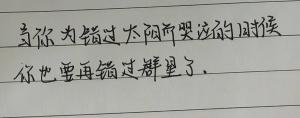 当你为错过太阳而哭泣的时候
你也要再错过群星了.